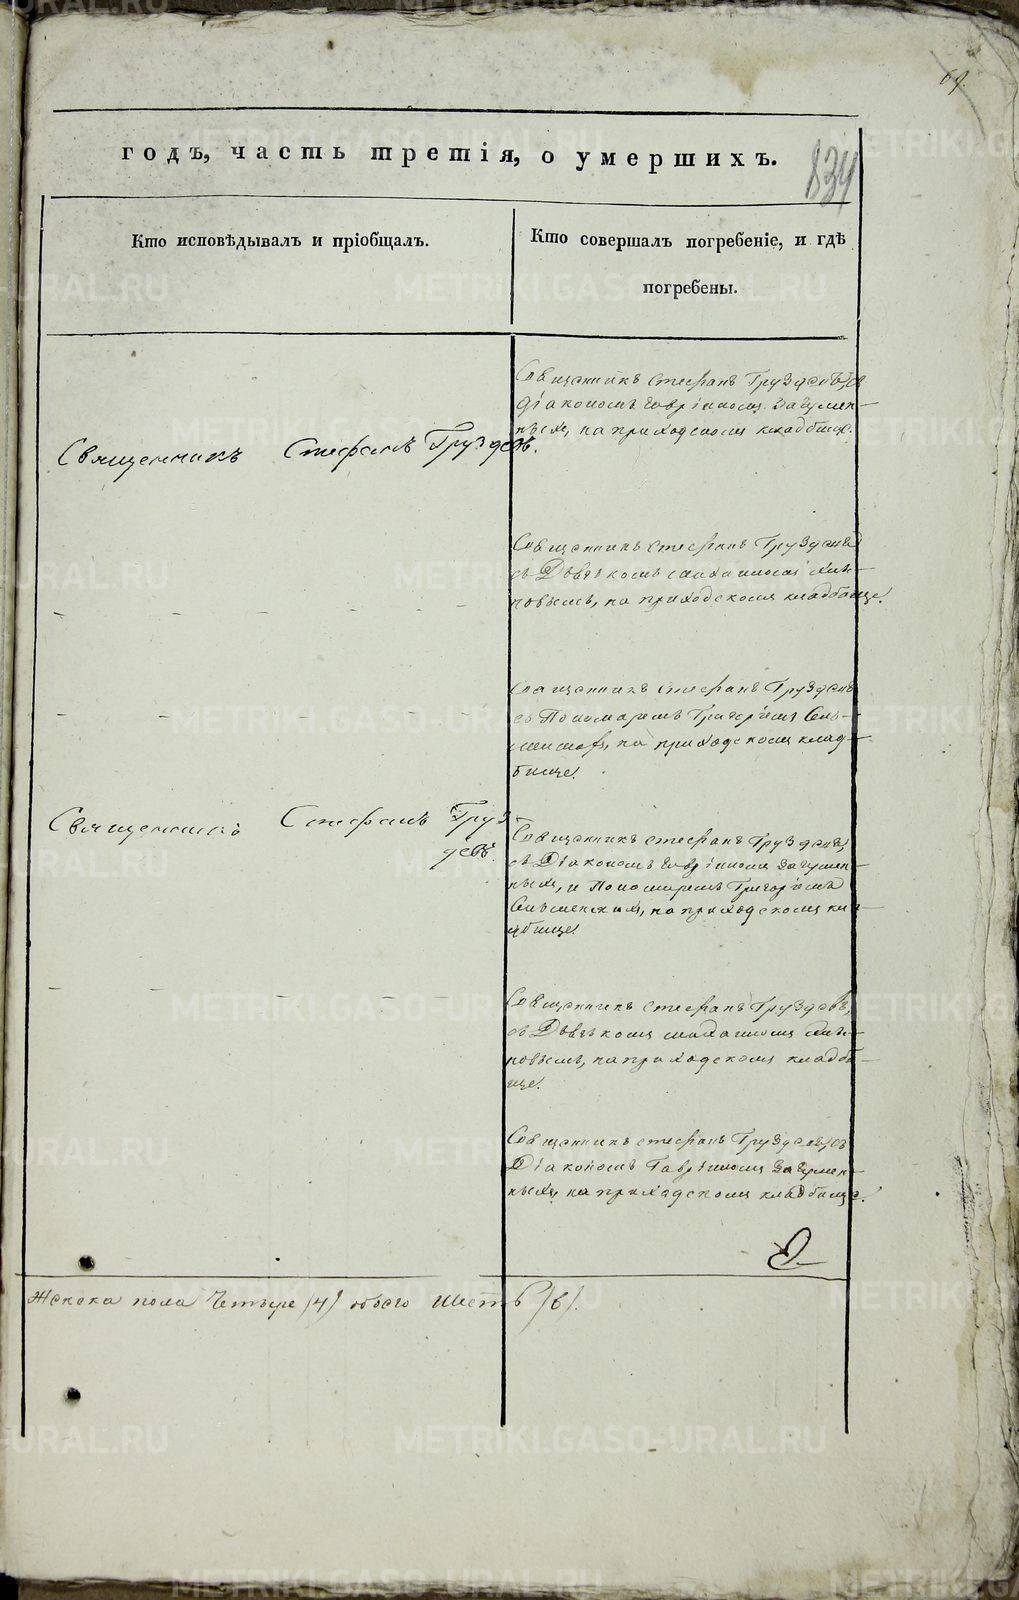 69.
годъ, часть третія, о умершихъ.
834
Кто исповѣдывалъ и пріобщалъ.
Кто совершалъ погребеніе, и гдѣ
погребены.
Священникъ Стефанъ Груздевъ.
Священникъ Стефанъ Груздевъ, съ
Діакономъ Гаврiиломъ Загумен-
ныхъ, на приходскомъ кладбище.
Священникъ Стефанъ Груздевъ
съ Дьячкомъ
повымъ, на приходскомъ кладбище.
Священникъ Стефанъ Груздевъ
съ Пономаремъ Григоріемъ
на приходскомъ клад-
бище.
Священникъ Стефанъ Груз
девъ.
Священникъ Стефанъ Груздевъ,
съ Діакономъ Гавріиломъ Загумен-
ныхъ, и Пономаремъ Григоріемъ
на приходскомъ кла
дбище.
Священникъ Стефанъ Груздевъ,
съ Дьячкомъ
повымъ, на приходскомъ кладби-
ще.
Священникъ Стефанъ Груздевъ, съ
Діакономъ Гавріиломъ Загумен-
ныхъ, на приходскомъ кладбище.
Женска пола Четыре (4) обоего Шесть (6).
METRIKI.GASO-URAL.RU